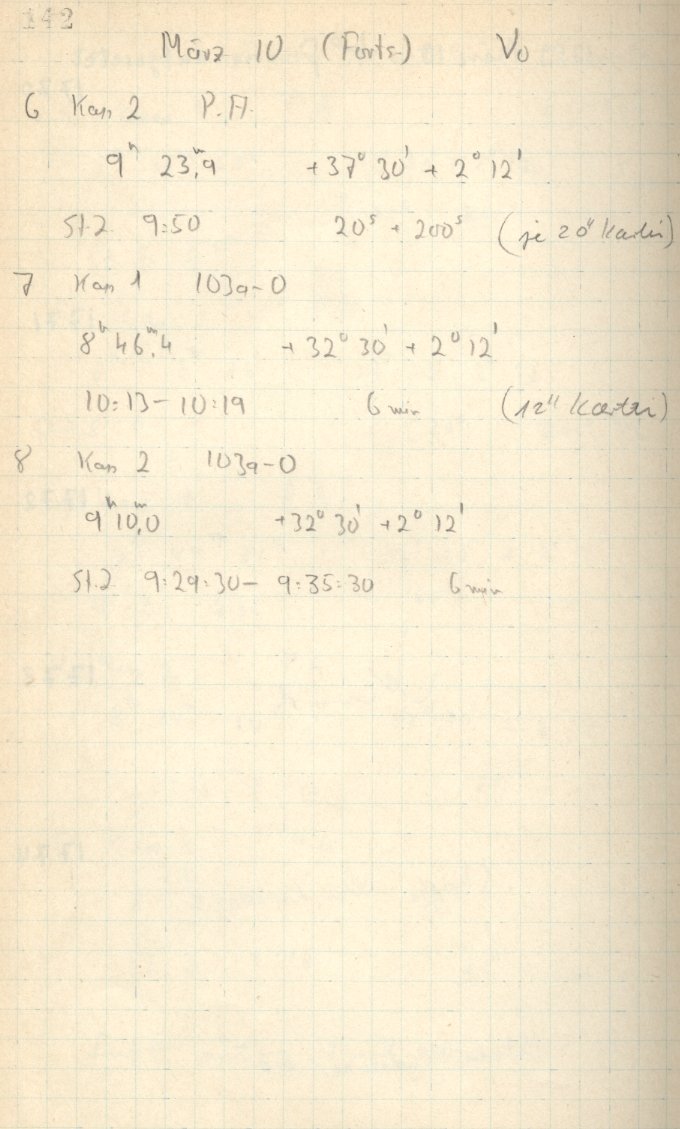 142
März 10 (Forts.) Vo
6 Kap 2 P.A.
9ʰ 23ᵐ,9 +37° 30' + 2° 12'
St.2 9:50 20ˢ + 200ˢ (je 20"
7 Kap 1 103a-O
8ʰ 46ᵐ,4 + 32° 30' + 2° 12'
10:13 - 10:19 6 min (12"
8 Kap 2 103a-O
9ʰ 10ᵐ,0 +32° 30' + 2° 12'
St.2 9:29:30 - 9:35:30 6 min